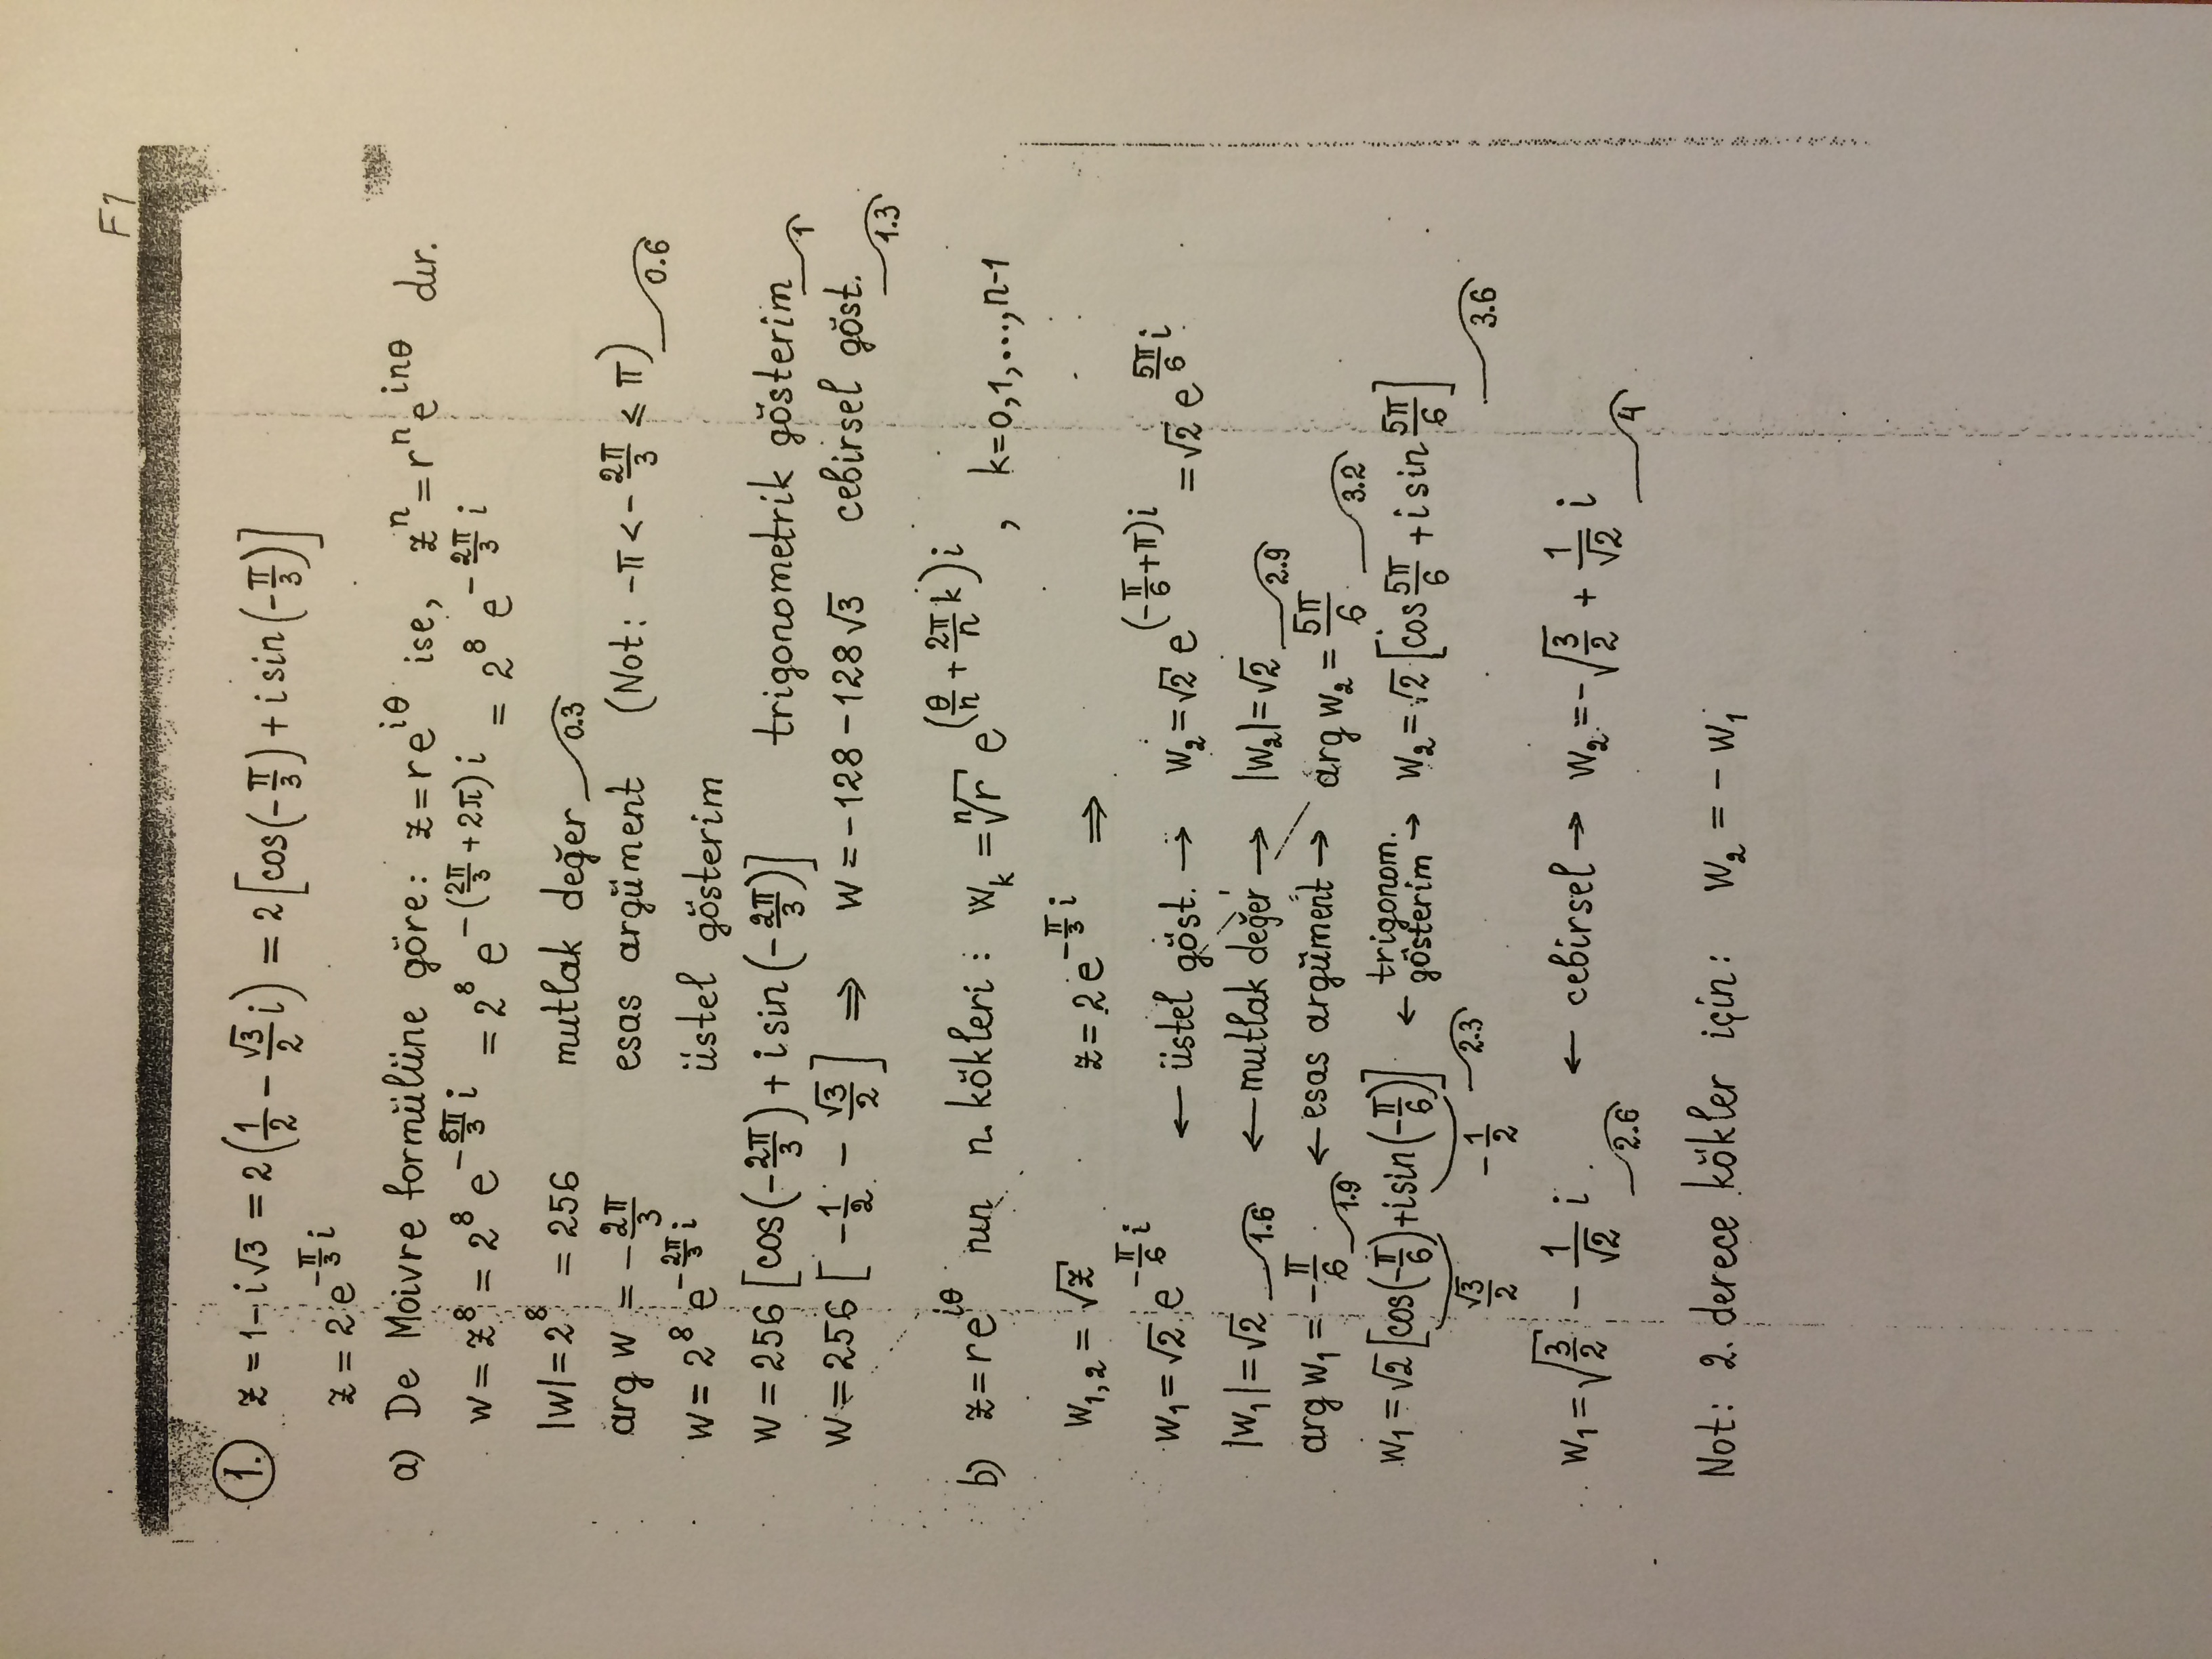 F1
1. z = 1 - i√3 = 2(1/2 - √3/2 i) = 2[cos(-π/3) + i sin(-π/3)]
z = 2 e^(-π/3 i)
a) De Moivre formülüne göre: z = r e^(iθ) ise, z^n = r^n e^(inθ) dır.
w = z^8 = 2^8 e^(-8π/3 i) = 2^8 e^(-(2π/3 + 2π) i) = 2^8 e^(-2π/3 i)
|w| = 2^8 = 256 mutlak değer 0.3
arg w = -2π/3 esas argüment (Not: -π < -2π/3 ≤ π) 0.6
w = 2^8 e^(-2π/3 i) üstel gösterim
w = 256 [cos(-2π/3) + i sin(-2π/3)] trigonometrik gösterim 1
w = 256 [-1/2 - √3/2] ⇒ w = -128 - 128√3 cebirsel göst. 1.3
b) z = r e^(iθ) nın n. kökleri : w_k = ⁿ√r e^((θ/n + 2π/n k) i) , k = 0,1,...,n-1
w_1,2 = √z z = 2 e^(-π/3 i) ⇒
w_1 = √2 e^(-π/6 i) ← üstel göst. → w_2 = √2 e^((-π/6 + π) i) = √2 e^(5π/6 i)
|w_1| = √2 1.6 ← mutlak değer → |w_2| = √2 2.9
arg w_1 = -π/6 1.9 ← esas argüment → arg w_2 = 5π/6 3.2
w_1 = √2 [cos(-π/6) + i sin(-π/6)] ← trigonom. gösterim → w_2 = √2 [cos 5π/6 + i sin 5π/6]
√3/2 -1/2 2.3 3.6
w_1 = √(3/2) - 1/√2 i 2.6 ← cebirsel → w_2 = -√(3/2) + 1/√2 i 4
Not: 2. derece kökler için: w_2 = - w_1